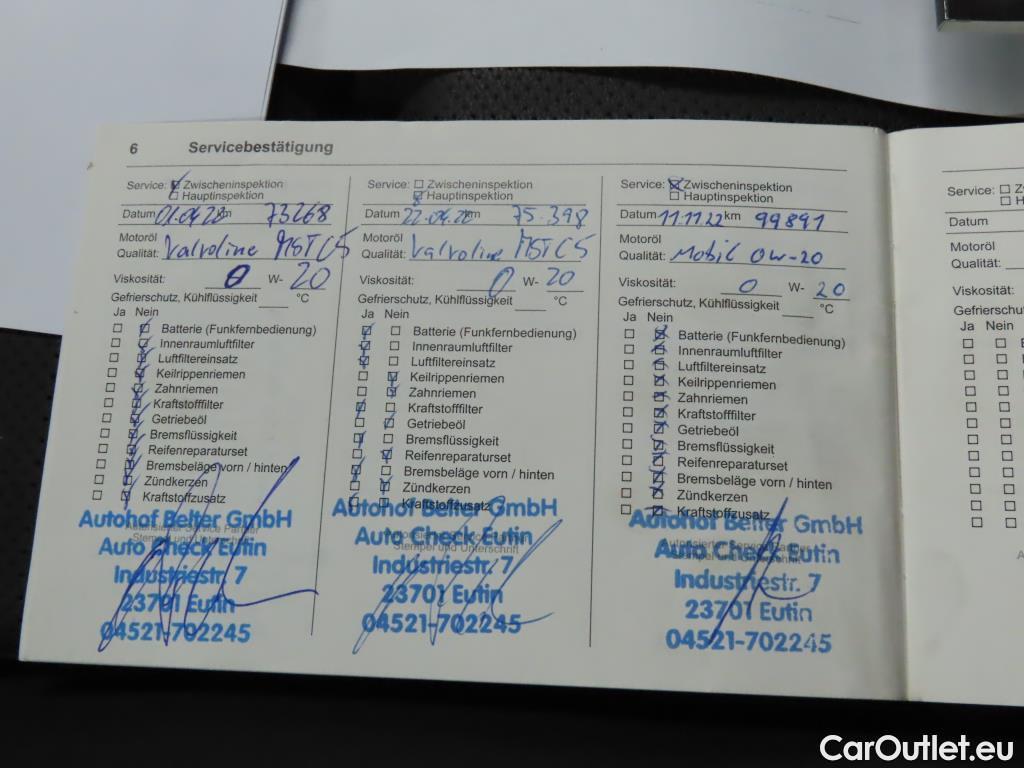 6 Servicebestätigung
Service: Zwischeninspektion
Hauptinspektion
Datum 01.04.22 km 73268
Motoröl
Qualität: Valvoline MST C5
Viskosität: 0 W- 20
Gefrierschutz, Kühlflüssigkeit °C
Ja Nein
Batterie (Funkfernbedienung)
Innenraumluftfilter
Luftfiltereinsatz
Keilrippenriemen
Zahnriemen
Kraftstofffilter
Getriebeöl
Bremsflüssigkeit
Reifenreparaturset
Bremsbeläge vorn / hinten
Zündkerzen
Kraftstoffzusatz
Autorisierter Service Partner
Stempel und Unterschrift
Autohof Belter GmbH
Auto Check Eutin
Industriestr. 7
23701 Eutin
04521-702245
Service: Zwischeninspektion
Hauptinspektion
Datum 22.04.22 km 75.398
Motoröl
Qualität: Valvoline MST C5
Viskosität: 0 W- 20
Gefrierschutz, Kühlflüssigkeit °C
Ja Nein
Batterie (Funkfernbedienung)
Innenraumluftfilter
Luftfiltereinsatz
Keilrippenriemen
Zahnriemen
Kraftstofffilter
Getriebeöl
Bremsflüssigkeit
Reifenreparaturset
Bremsbeläge vorn / hinten
Zündkerzen
Kraftstoffzusatz
Autorisierter Service Partner
Stempel und Unterschrift
Autohof Belter GmbH
Auto Check Eutin
Industriestr. 7
23701 Eutin
04521-702245
Service: Zwischeninspektion
Hauptinspektion
Datum 11.11.22 km 99891
Motoröl
Qualität: Mobil 0W-20
Viskosität: 0 W- 20
Gefrierschutz, Kühlflüssigkeit °C
Ja Nein
Batterie (Funkfernbedienung)
Innenraumluftfilter
Luftfiltereinsatz
Keilrippenriemen
Zahnriemen
Kraftstofffilter
Getriebeöl
Bremsflüssigkeit
Reifenreparaturset
Bremsbeläge vorn / hinten
Zündkerzen
Kraftstoffzusatz
Autorisierter Service Partner
Stempel und Unterschrift
Autohof Belter GmbH
Auto Check Eutin
Industriestr. 7
23701 Eutin
04521-702245
Service: Z
H
Datum
Motoröl
Qualität:
Viskosität:
Gefriersc
Ja Nein
CarOutlet.eu